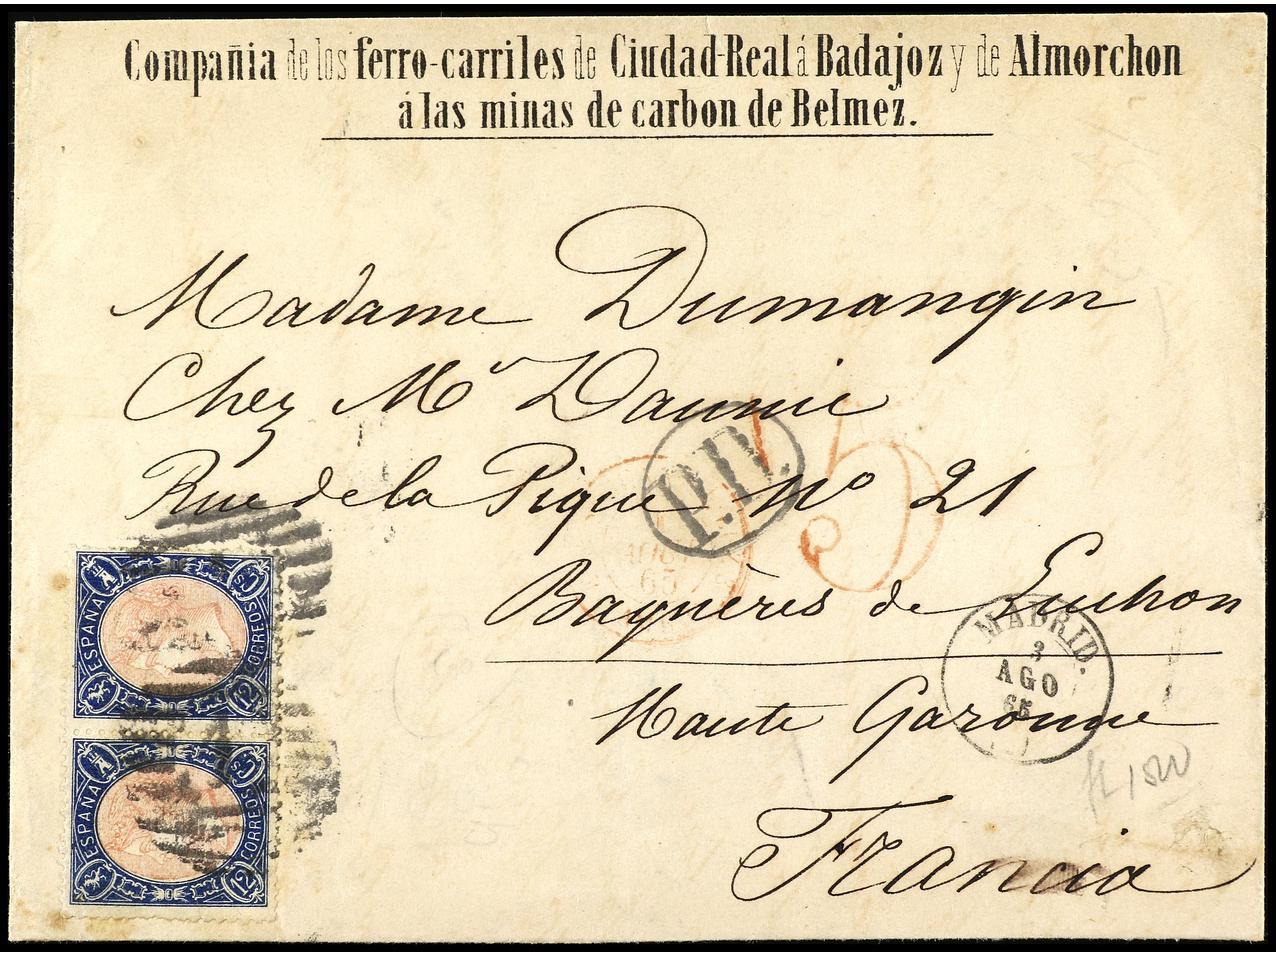 Compañia de los ferro-carriles de Ciudad-Real á Badajoz y de Almorchon
á las minas de carbon de Belmez.
Madame Dumangin
Chez Mr Daunic
Rue de la Pique No 21
P.D.
Bagnères de Luchon
Haute Garonne
Francia
MADRID.
3
AGO
65
ESPAÑA
CORREOS
12
CS
ESPAÑA
CORREOS
12
CS